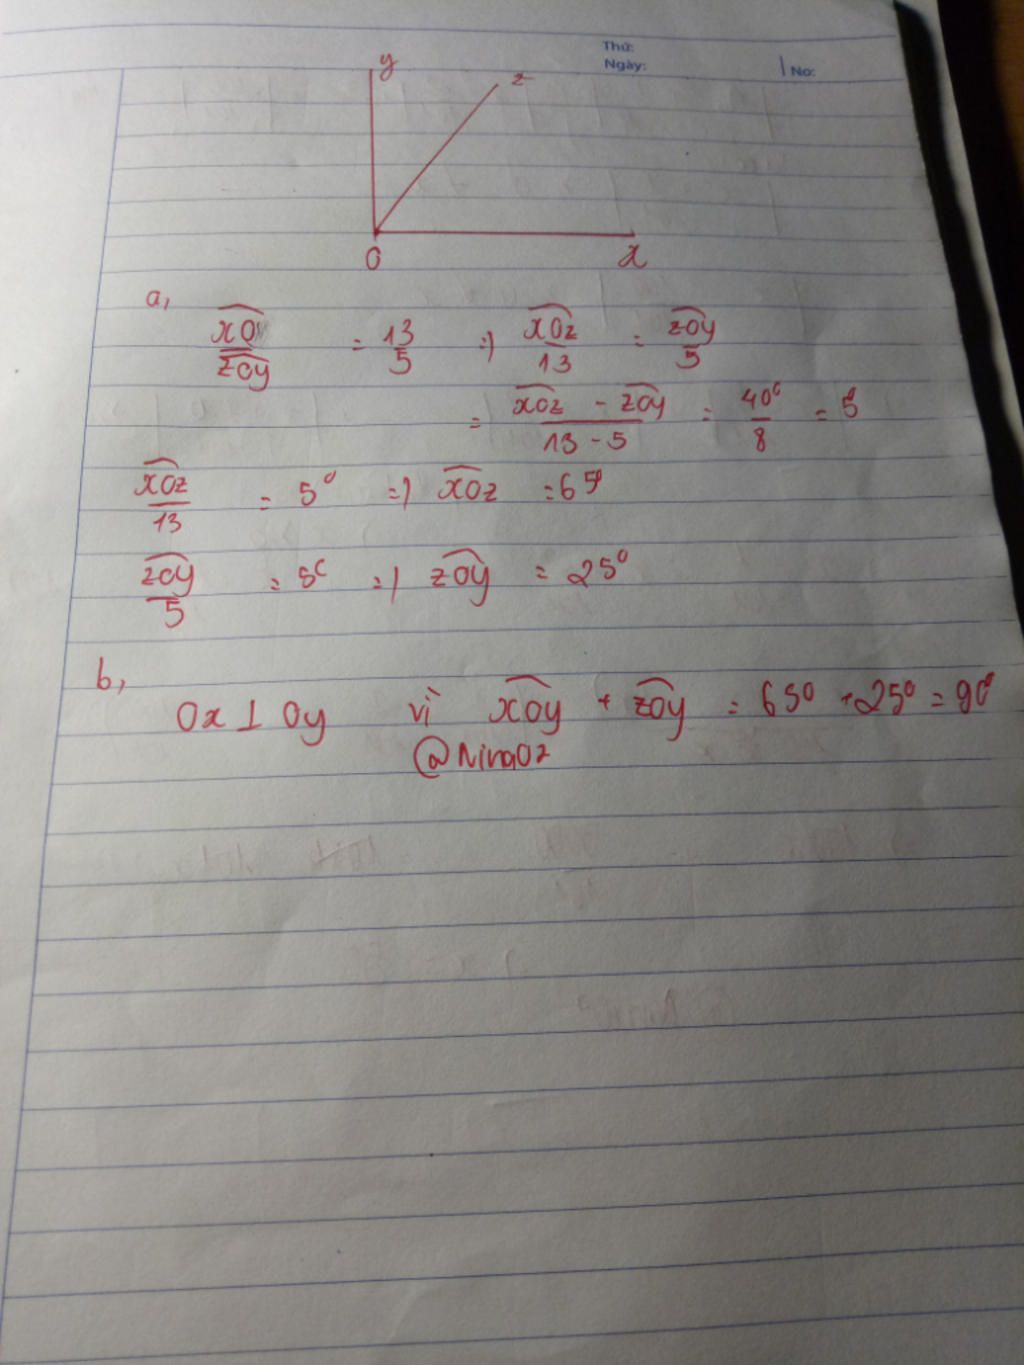 Thứ:
Ngày:
No:
y
z
O
x
a,
xO / zOy = 13/5 => xOz/13 = zOy/5
= xOz - zOy / 13 - 5 = 40°/8 = 5
xOz/13 = 5° => xOz = 65°
zOy/5 = 5° => zOy = 25°
b,
Ox ⊥ Oy vì xOy + zOy = 65° + 25° = 90°
@Nina02